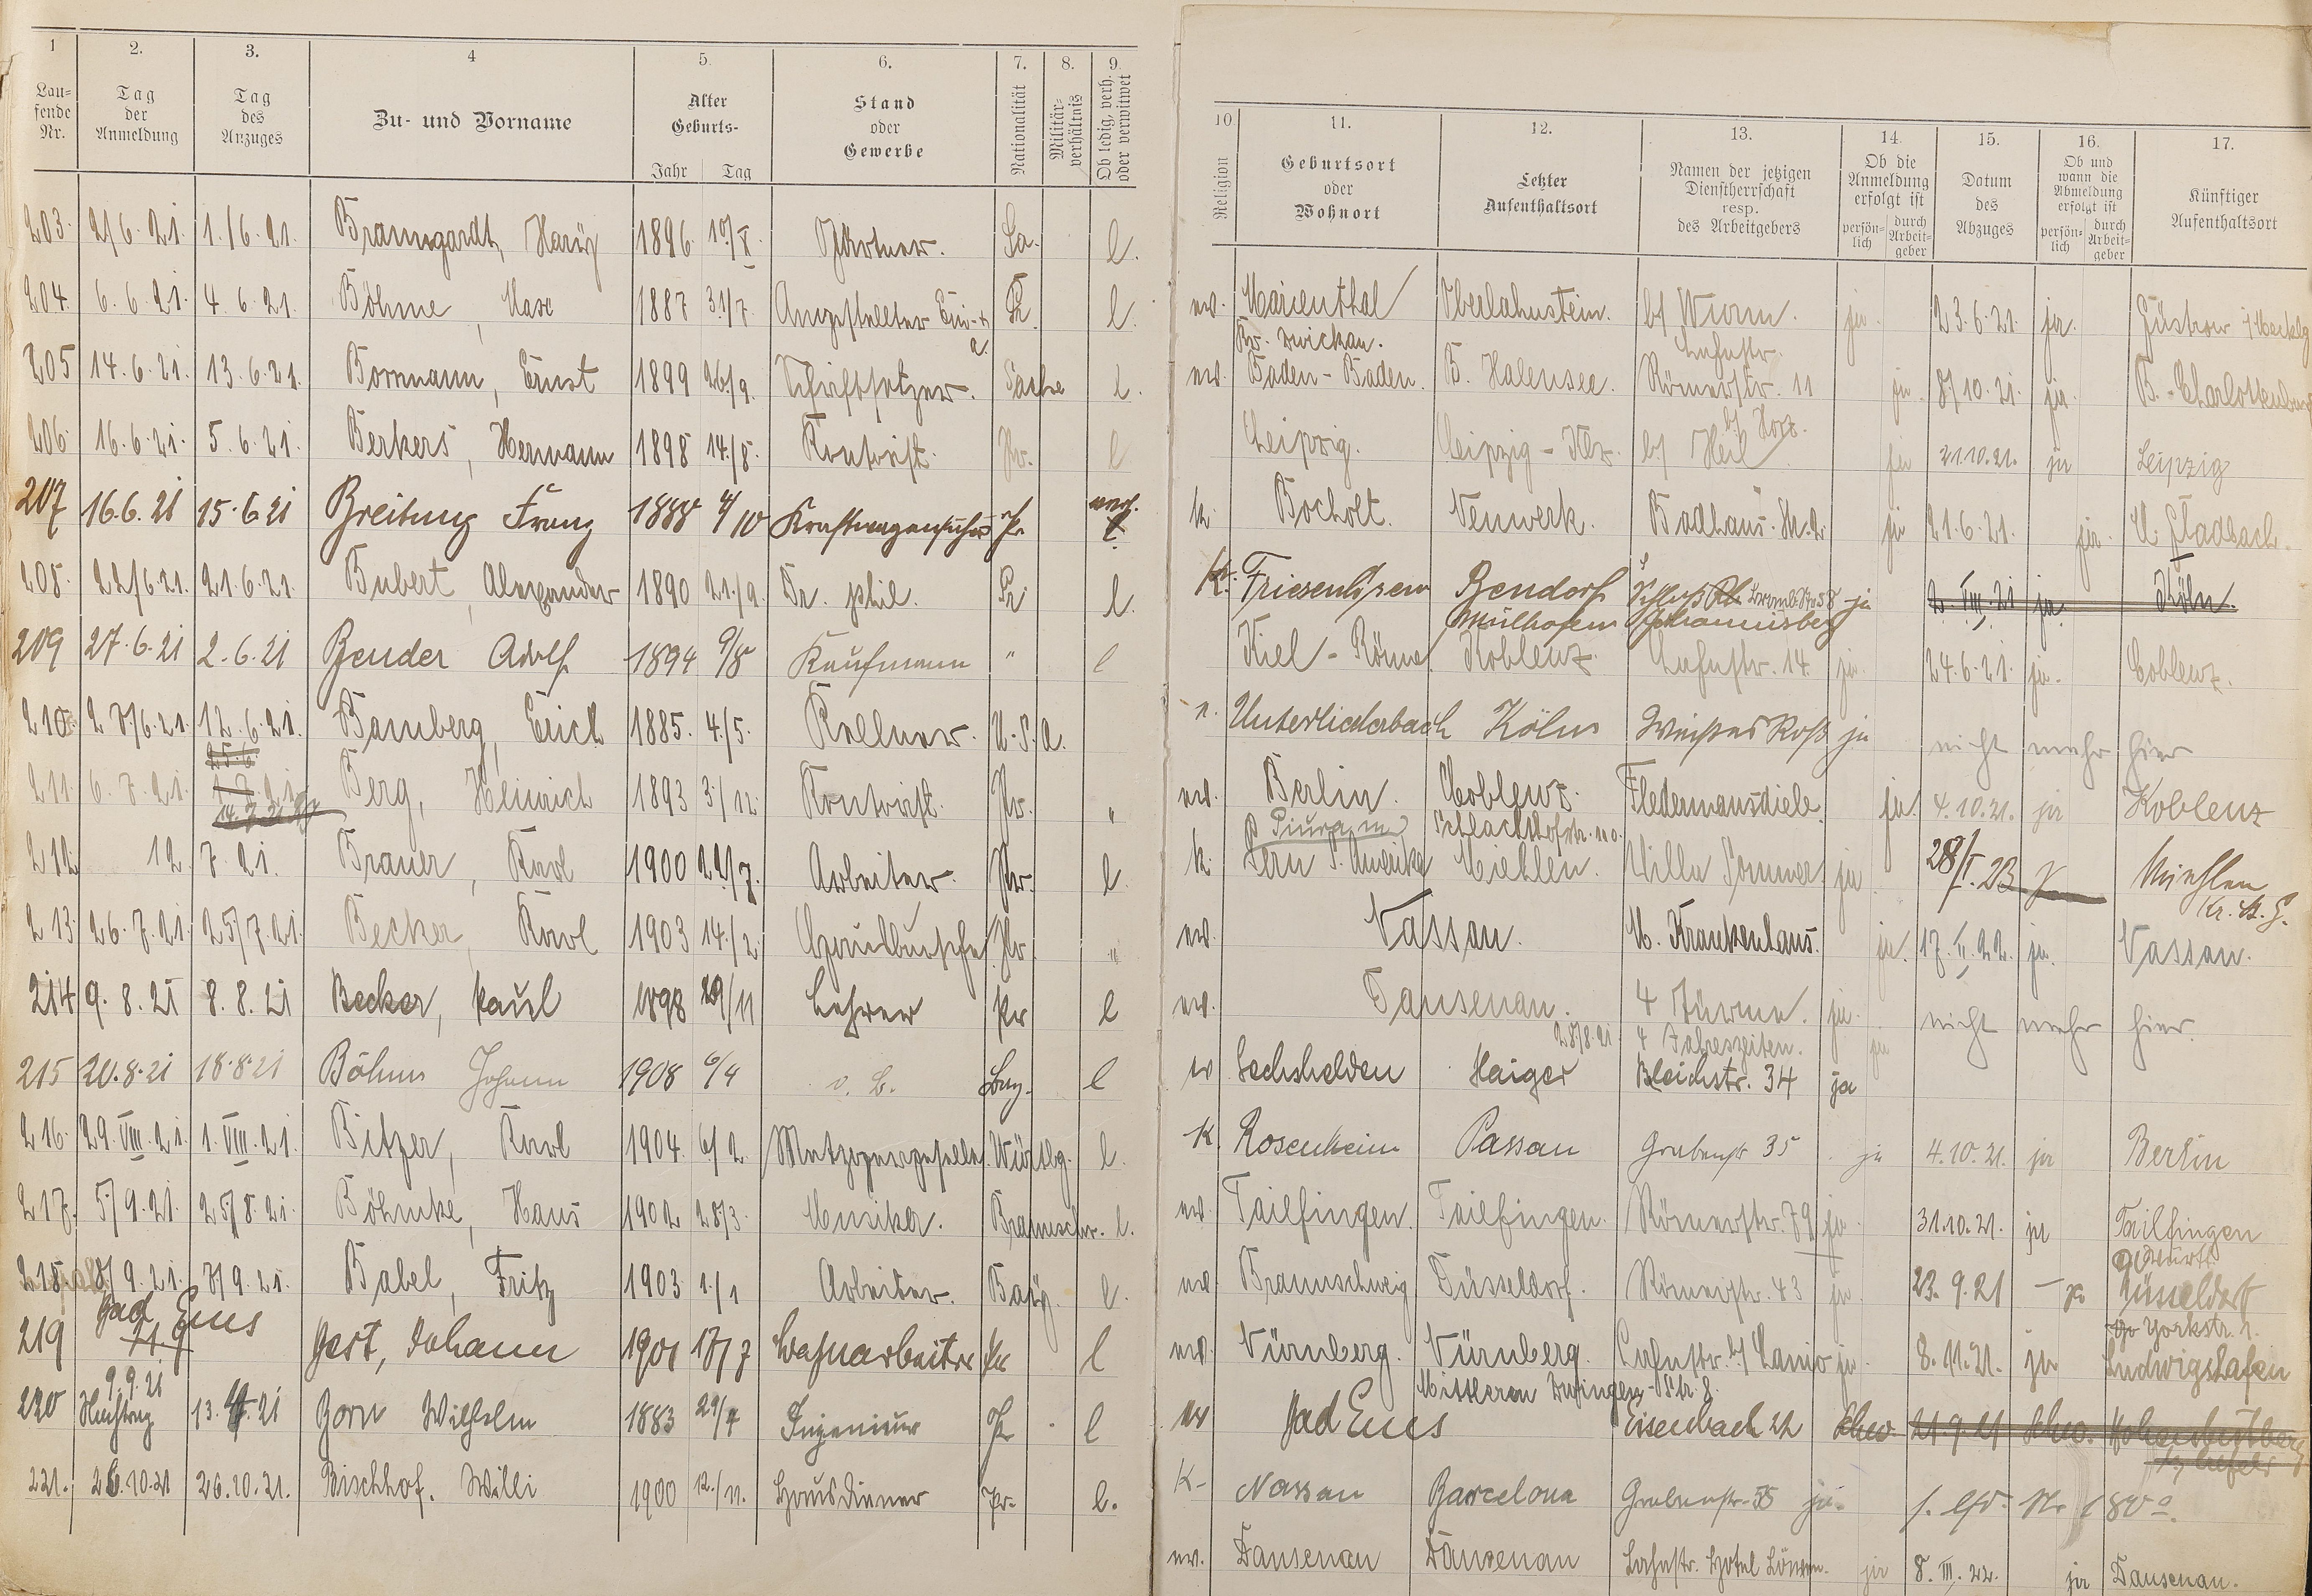 1 2. 3. 4 5. 6. 7. 8. 9.
Lau=
fende
Nr.
Tag
der
Anmeldung
Tag
des
Anzuges
Zu- und Vorname
Alter
Geburts-
Jahr Tag
Stand
oder
Gewerbe
Nationalität
Militär-
verhältnis
Ob ledig, verh.
oder verwitwet
203. 2/6.21. 1./6.21. 1896 Gärtner. Sa. l.
204. 6.6.21. 4.6.21. Böhme, 1887 31/7. Angestellter l.
205 14.6.21. 13.6.21. Bornmann, Ernst 1899 26/9. Schriftsetzer. Sachse l.
206. 16.6.21. 5.6.21. Berkers, Hermann 1898 14./8. Kontorist. Pr. l
207 16.6.21 15.6.21 Breitung Franz 1888 4/10 Kraftwagenführer Pr.
208. 22/6.21. 21.6.21. Bubert, Alexander 1890 21./9. Dr. phil. Pr l.
209 27.6.21 2.6.21 Bender Adolf 1894 9/8 Kaufmann " l
210. 28/6.21. 12.6.21. Bamberg, Erich 1885. 4./5. Kellner. U.S.A.
25.6.
211. 6.7.21. Berg, Heinrich 1893 3./12. Kontorist. Pr. "
212 12. 7.21. Brauer, Karl 1900 Arbeiter. Pr. l.
213. 26.7.21. 25/7.21. Becker, Karl 1903 14./2. Hausbursche Pr. "
214 9.8.21 8.8.21 Becker, Paul 1898 29/11 Lehrer Pr l
215 20.8.21 18.8.21 Böhm Johann 1908 6/4 o. B. Bay. l
216. 29.VIII.21. 1.VIII.21. Bitzer, Karl 1904 6/2 Metzgergeselle. Württbg. l.
217. 5/9.21. 25/8.21. Böhnke, Hans 1902 28/3. Musiker. Braunschw. l.
218. 8/9.21. 7/9.21. Babel, Fritz 1903 1./1 Arbeiter. Bay. l.
Bad Ems
219 Bast, Johann 1901 17/7 Bahnarbeiter Pr l
9.9.21
220 Nachtrag Born Wilhelm 1883 29/7 Ingenieur Pr l
221. 26.10.21 26.10.21. Bischhof. Willi 1900 12./11. Hausdiener Pr. l.
10 11. 12. 13. 14. 15. 16. 17.
Religion
Geburtsort
oder
Wohnort
Letzter
Aufenthaltsort
Namen der jetzigen
Dienstherrschaft
resp.
des Arbeitgebers
Ob die
Anmeldung
erfolgt ist
persön-
lich
durch
Arbeit-
geber
Datum
des
Abzuges
Ob und
wann die
Abmeldung
erfolgt ist
persön-
lich
durch
Arbeit-
geber
Künftiger
Aufenthaltsort
ev. Marienthal Oberlahnstein. b/ Wurm. ja. 23.6.21. ja. Güstrow i/Mecklg
Kr. Zwickau. Lahnstr.
ev. Baden-Baden. B. Halensee. Römerstr. 11 ja. 8/10.21. ja. B.-Charlottenburg
Leipzig. b/ Heil ja 21.10.21. ja Leipzig
k. Bocholt. Badhaus. ja 21.6.21. ja. M. Gladbach.
K. Bendorf ja 2.VIII.21 ja. Köln.
Mülhofen Johannisberg
Koblenz. Lahnstr. 14. ja. 24.6.21. ja. Coblenz.
Unterliederbach Köln Weißes Roß ja nicht mehr hier
ev. Berlin. Coblenz. Fledermausdiele ja. 4.10.21. ja Koblenz
Schlachthofstr.
k. Miehlen. Villa Sommer ja 28/I.23 Miehlen
Kr. St. G.
ev. Nassau. St. Krankenhaus. ja. 17.II.22. ja. Nassau.
ev. Dausenau. 4 Türme. ja. nicht mehr hier.
28/8.21. 4 Jahreszeiten. ja
ev Sechshelden Haiger Bleichstr. 34 ja
K. Rosenheim Passau Grabenstr 35 ja 4.10.21. ja Berlin
ev. Tailfingen. Tailfingen. Römerstr. 79 ja. 31.10.21. ja Tailfingen
ev. Braunschweig Düsseldorf. Römerstr. 43 ja. 23.9.21 — ja Düsseldorf
Yorkstr. 1.
ev. Nürnberg. Nürnberg. Lahnstr. ja. 8.11.21. ja Ludwigshafen
Mittleren Zwinger-Str. 8.
ev Bad Ems Eisenbach 22 21.9.21
K- Nassau Barcelona Grabenstr. 55 ja.
ev. Dausenau Dausenau Lahnstr. Hotel Löwen. ja 8.III.22. ja Dausenau.